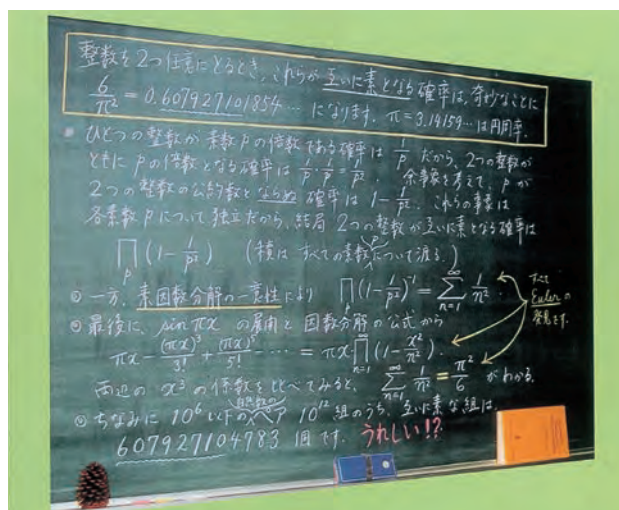 整数を2つ任意にとるとき、これらが互いに素となる確率は、奇妙なことに
6/π² = 0.607927101854… になります. π = 3.14159… は円周率.
ひとつの整数が素数 p の倍数である確率は 1/p だから、2つの整数が
ともに p の倍数となる確率は 1/p・1/p = 1/p² 余事象を考えて、p が
2つの整数の公約数とならぬ確率は 1 − 1/p². これらの事象は
各素数 p について独立だから、結局 2つの整数が互いに素となる確率は
∏_p (1 − 1/p²) (積はすべての素数 p について渡る.)
◎ 一方、素因数分解の一意性により ∏_p (1 − 1/p²)⁻¹ = ∑_{n=1}^{∞} 1/n².
すべて
Eulerの
発見です.
◎ 最後に、sin πx の展開と因数分解の公式から
πx − (πx)³/3! + (πx)⁵/5! − … = πx ∏_{n=1}^{∞} (1 − x²/n²).
両辺の x³ の係数を比べてみると、 ∑_{n=1}^{∞} 1/n² = π²/6 がわかる.
◎ ちなみに 10⁶ 以下の自然数のペア 10¹² 組のうち、互いに素な組は、
607927104783 個です. うれしい!?